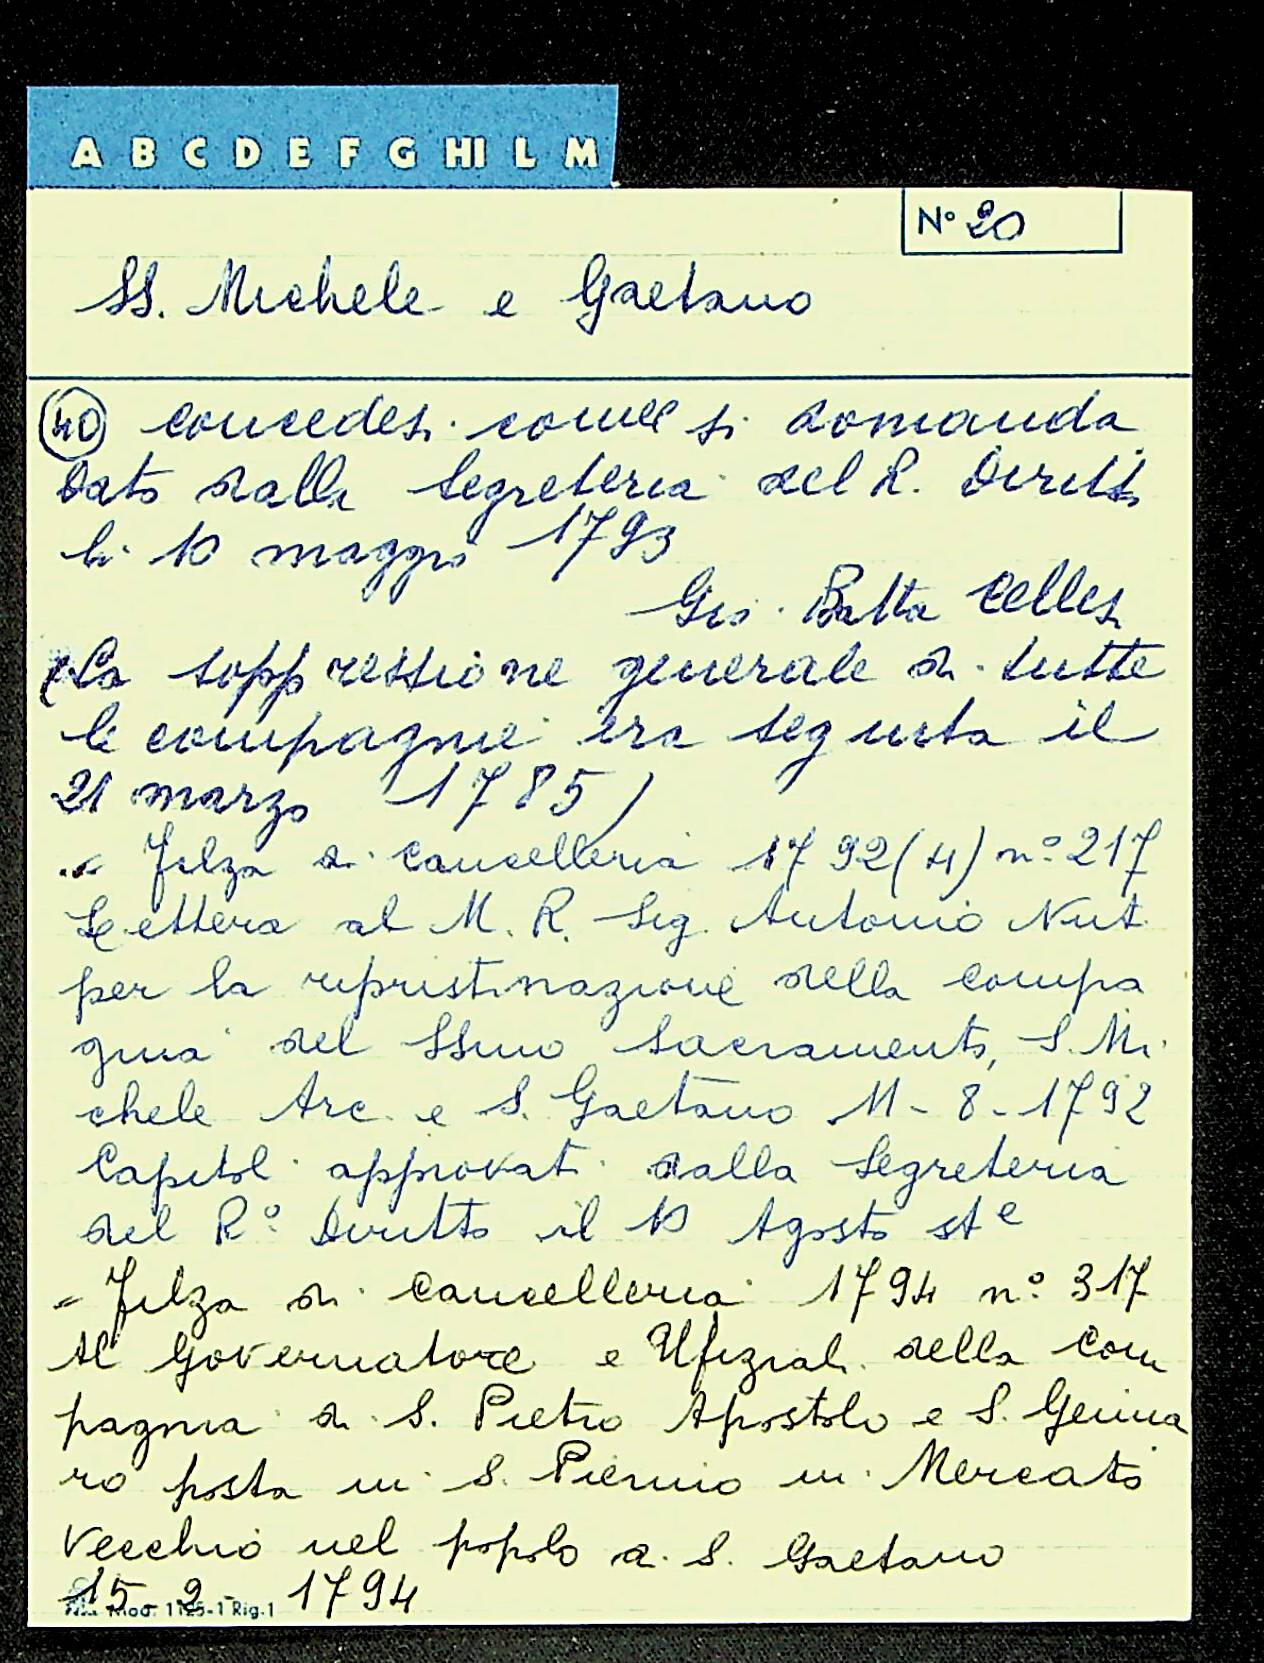 A B C D E F G HI L M
N° 20
SS. Michele e Gaetano
40 concedesi come si domanda
Dato dalla Segreteria del R. Diritto
li 10 maggio 1793
Gio. Batta Cellesi
(La soppressione generale di tutte
le compagnie era seguita il
21 marzo 1785)
Filza di cancelleria 1792 (4) n° 217
Lettera al M. R. Sig. Antonio Nuti
per la ripristinazione della compa
gnia del SSmo Sacramento, S. Mi
chele Arc. e S. Gaetano 11-8-1792
Capitoli approvati dalla Segreteria
del R° Diritto il 10 Agosto st e
- Filza di cancelleria 1794 n° 317
Al Governatore e Ufiziali della com
pagnia di S. Pietro Apostolo e S. Genna
ro posta in S. Pierino in Mercato
Vecchio nel popolo di S. Gaetano
15-2-1794
Mod. 1125-1 Rig.1